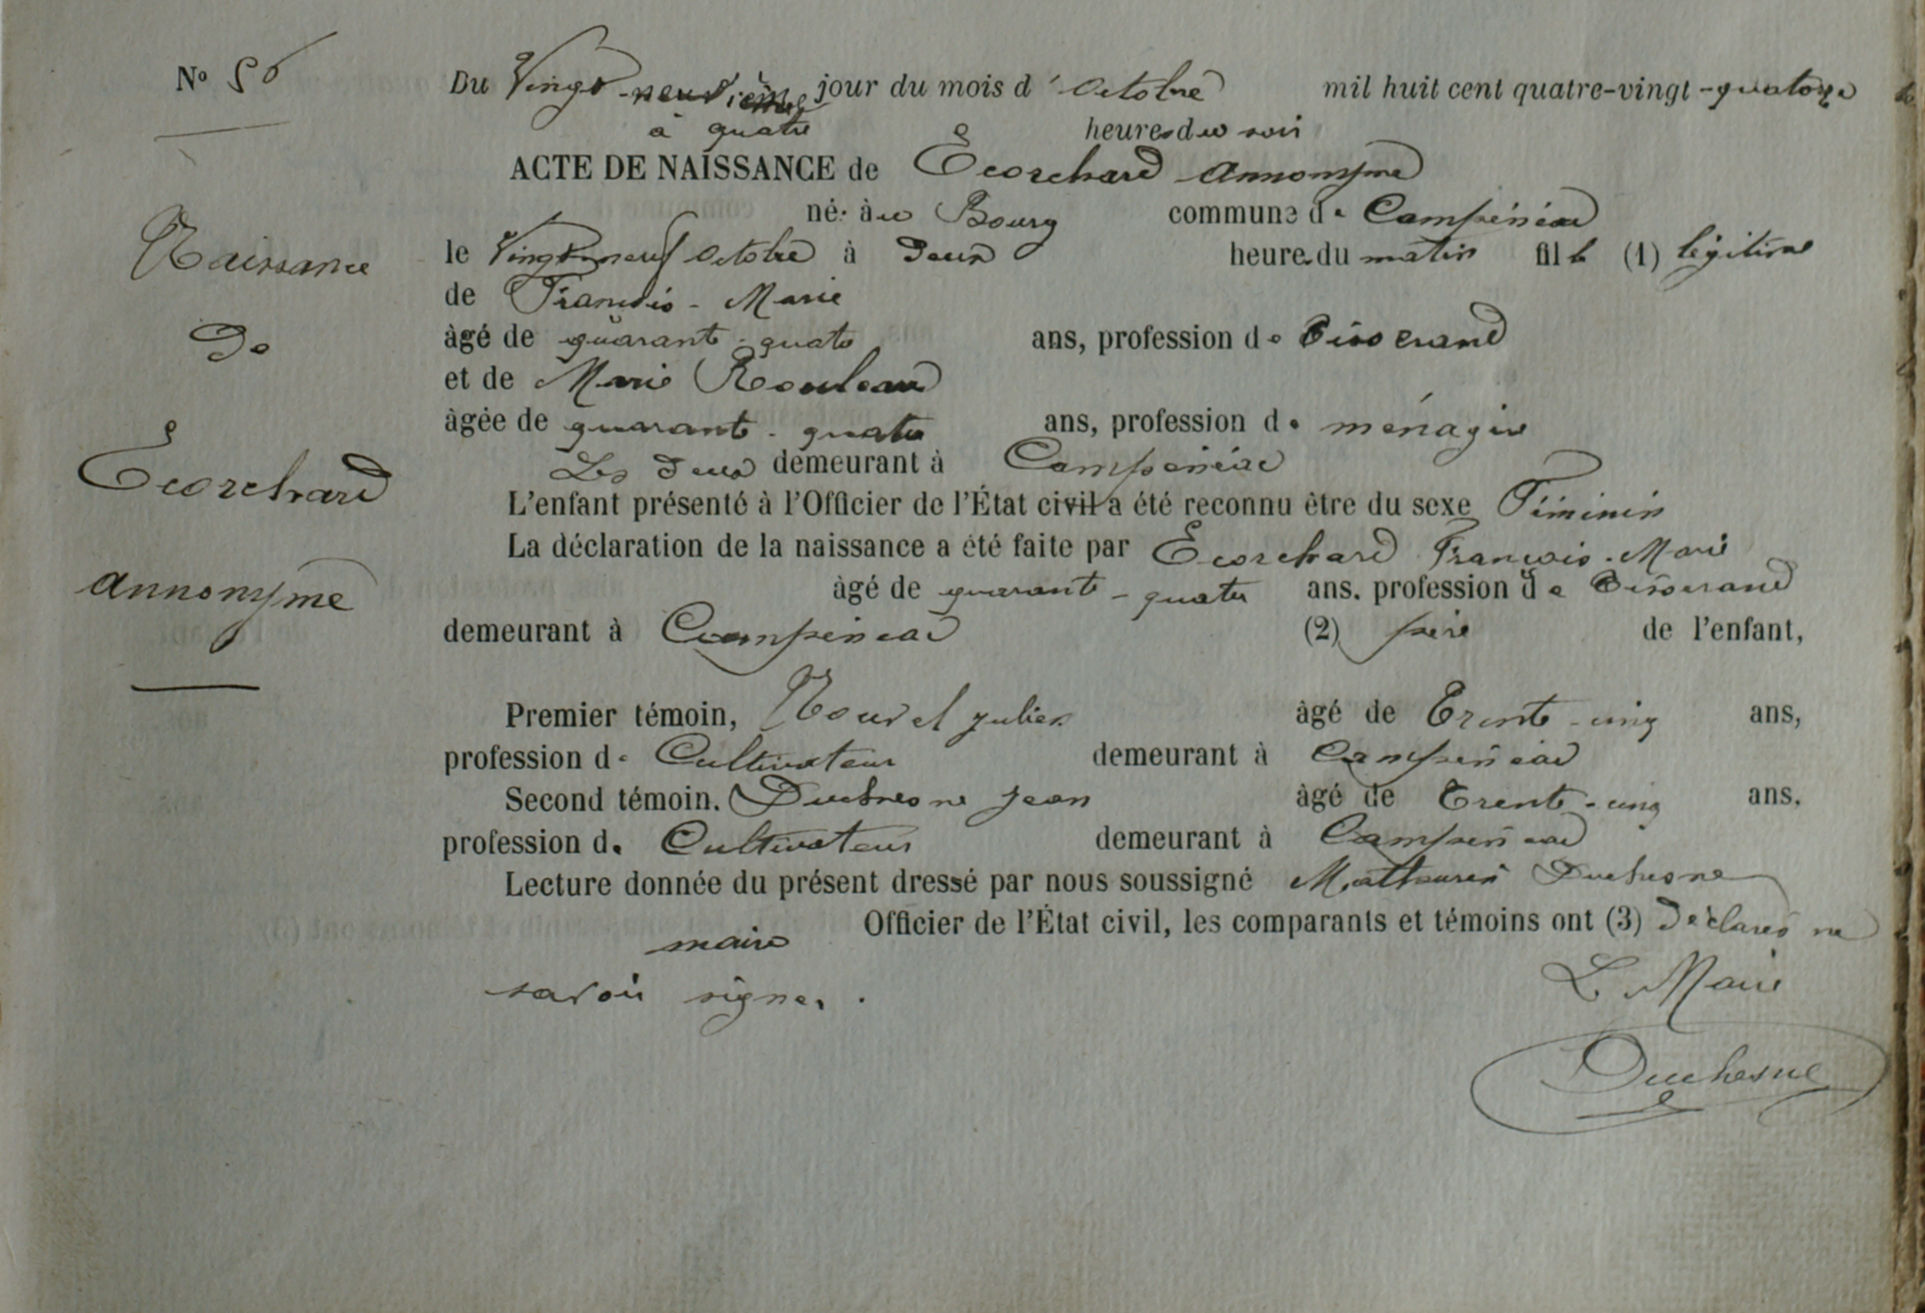 N° 56
Du Vingt-neuvième jour du mois d'octobre mil huit cent quatre-vingt-quatorze
à quatre heures du soir
ACTE DE NAISSANCE de Ecorchard annonyme
né au Bourg commune de Campénéac
Naissance
le Vingt neuf octobre à Deux heure du matin fille (1) légitime
de François-Marie
De
âgé de quarante-quatre ans, profession de Tisserand
et de Marie Rouleaux
âgée de quarante-quatre ans, profession de ménagère
Ecorchard
Les Deux demeurant à Campénéac
L'enfant présenté à l'Officier de l'État civil a été reconnu être du sexe Féminin
La déclaration de la naissance a été faite par Ecorchard François-Marie
annonyme
âgé de quarante-quatre ans, profession de Tisserand
demeurant à Campénéac (2) père de l'enfant,
Premier témoin, Nourel julien âgé de Trente-cinq ans,
profession de Cultivateur demeurant à Campénéac
Second témoin, Duchesne jean âgé de Trente-cinq ans,
profession de Cultivateur demeurant à Campénéac
Lecture donnée du présent dressé par nous soussigné Mathurin Duchesne
maire Officier de l'État civil, les comparants et témoins ont (3) Déclarés ne
savoir signer.
Le Maire
Duchesne